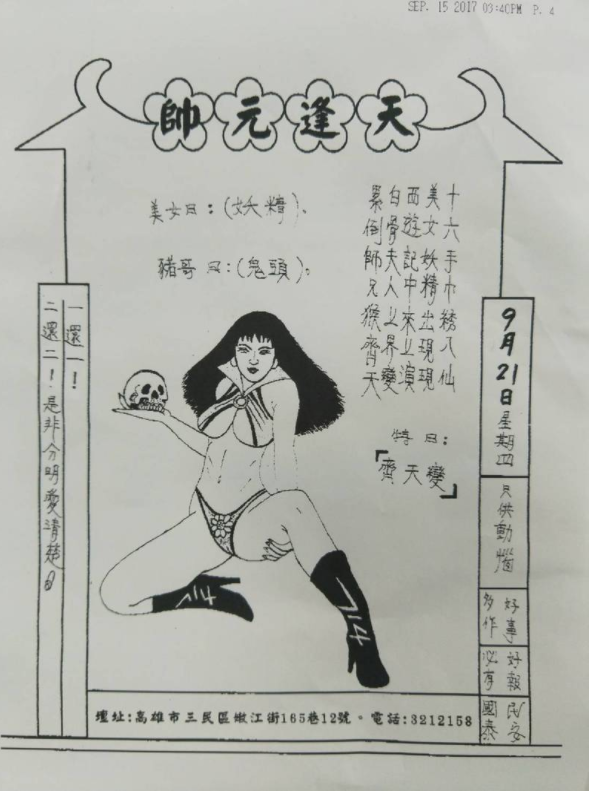 SEP. 15 2017 03:40PM P. 4
天逢元帥
9月21日星期四
只供動惱
好事
多作
好報
必有
民安
國泰
十六手巾綉八仙
美女妖精出現現
西遊記中來上演
白骨夫人上界變
累倒師兄猴齊天
特曰:
「齊天變」
美女曰:(妖精)、
豬哥曰:(鬼頭)。
一還一!
二還二!是非分明愛清楚
壇址:高雄市三民區嫩江街165巷12號。電話:3212158